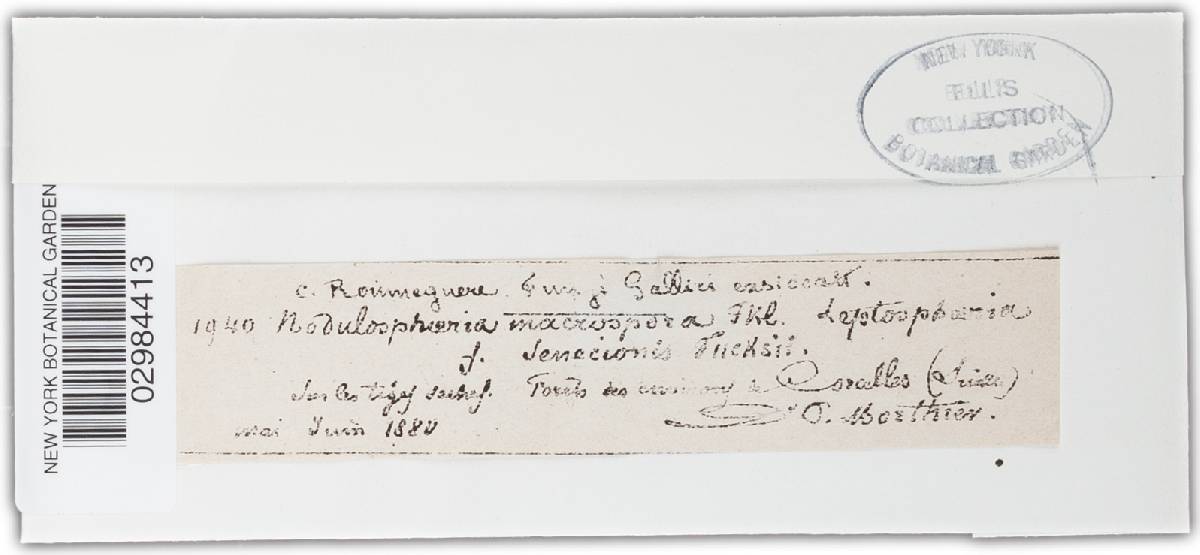 NEW YORK
ELLIS
COLLECTION
BOTANICAL GARDEN
NEW YORK BOTANICAL GARDEN
02984413
C. Roumeguere. Fungi Gallici exsiccati.
1940 Nodulosphæria macrospora Fkl. Leptosphæria
f. Senecionis Fucksii.
Sur les tiges sèches. Forêts des environs de Corcelles (Suisse)
mai Juin 1880
Dr P. Morthier.